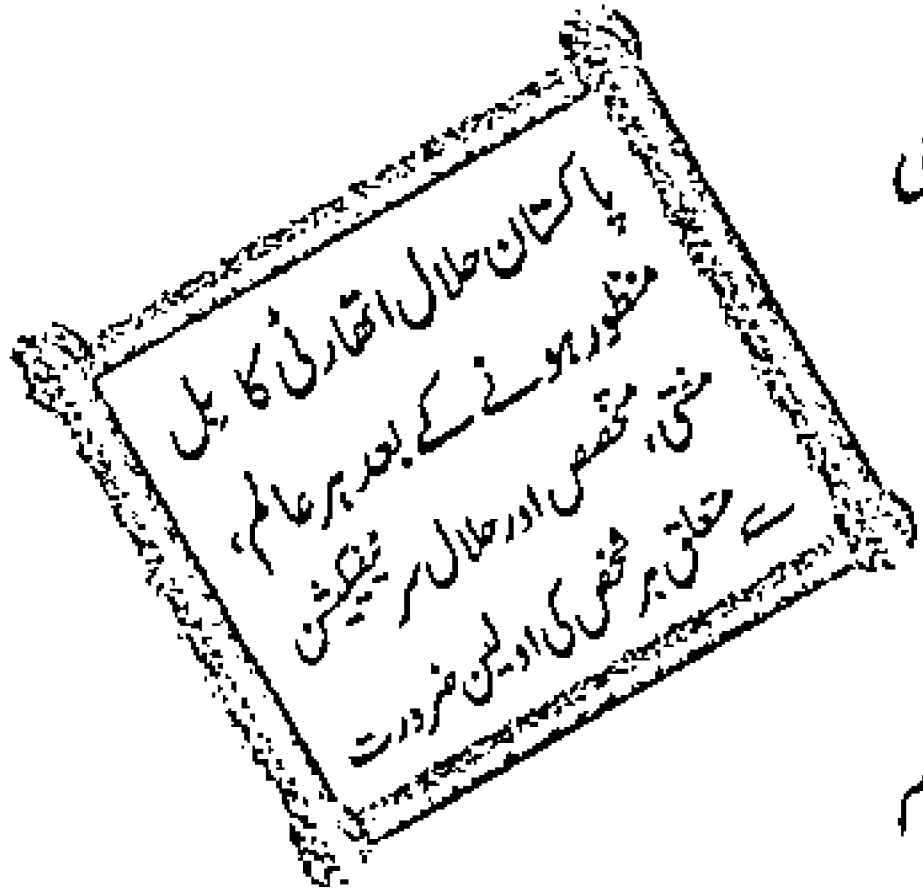 پاکستان حلال اتھارٹی کا بل
منظور ہونے کے بعد ہر عالم،
مفتی، متخصص اور حلال سرٹیفکیشن
سے متعلق ہر شخص کی اولین ضرورت